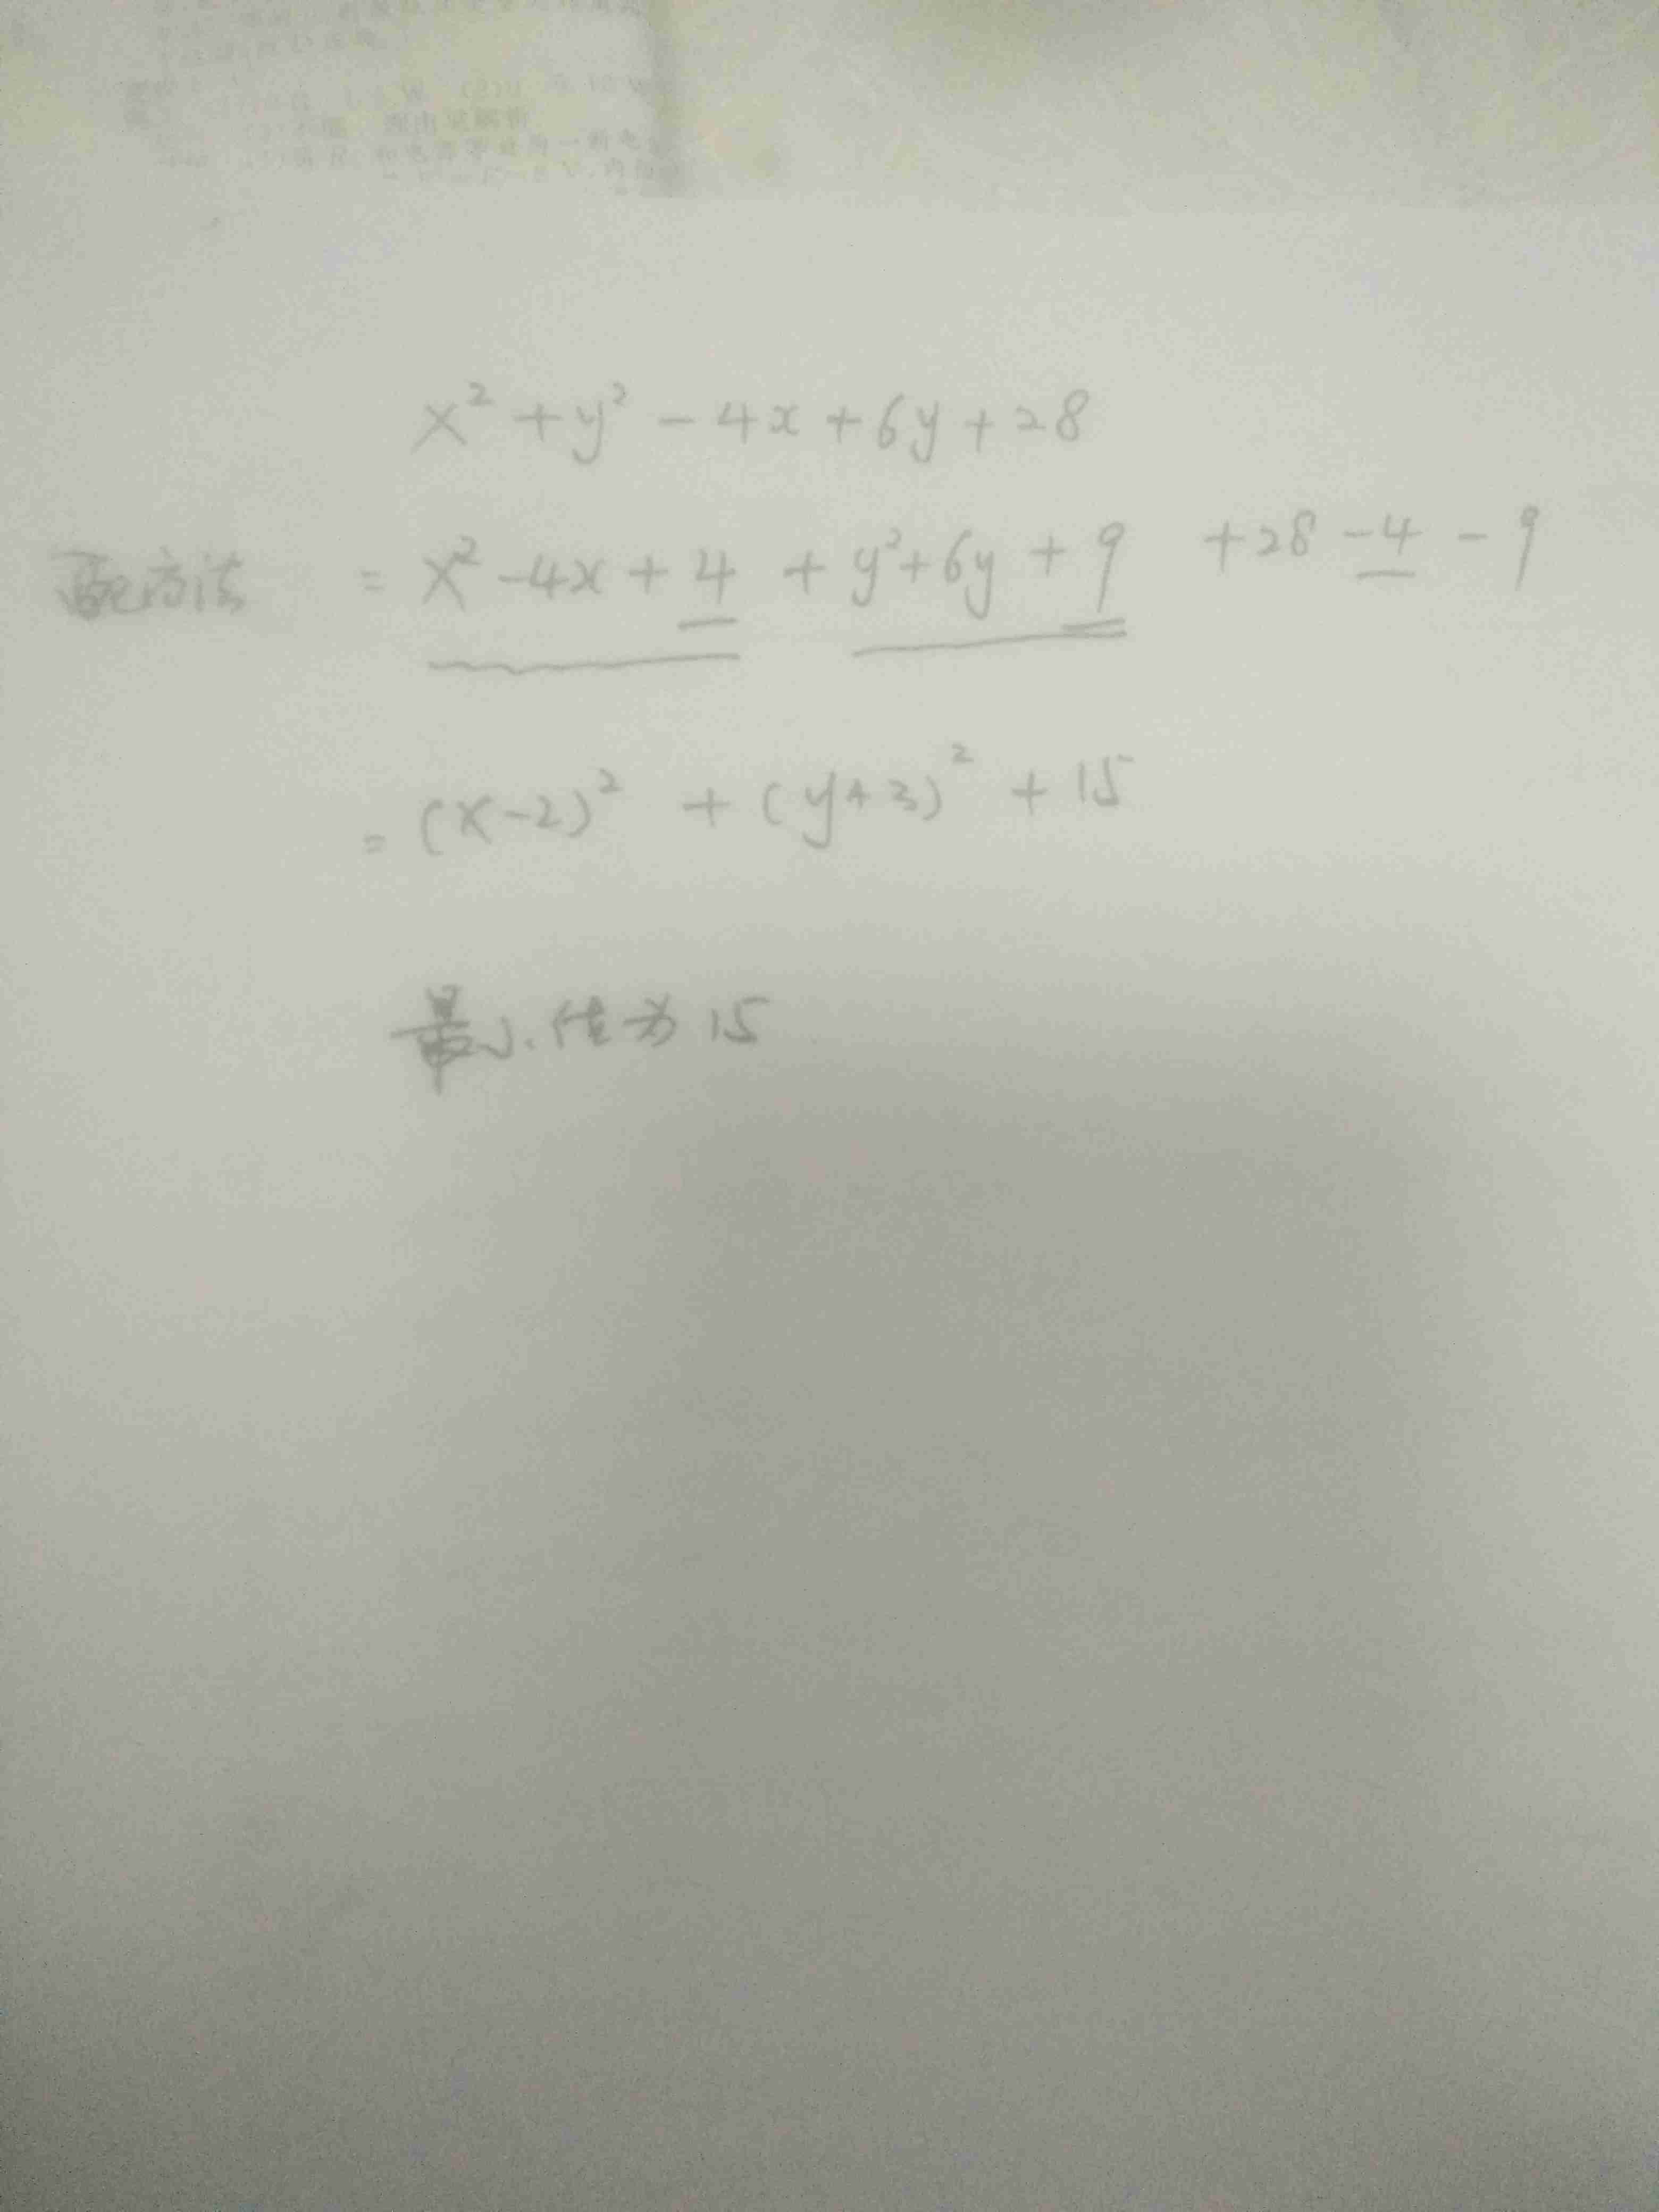 x² + y² - 4x + 6y + 28
配方法 = x² - 4x + 4 + y² + 6y + 9 + 28 - 4 - 9
= (x-2)² + (y+3)² + 15
最小值为 15